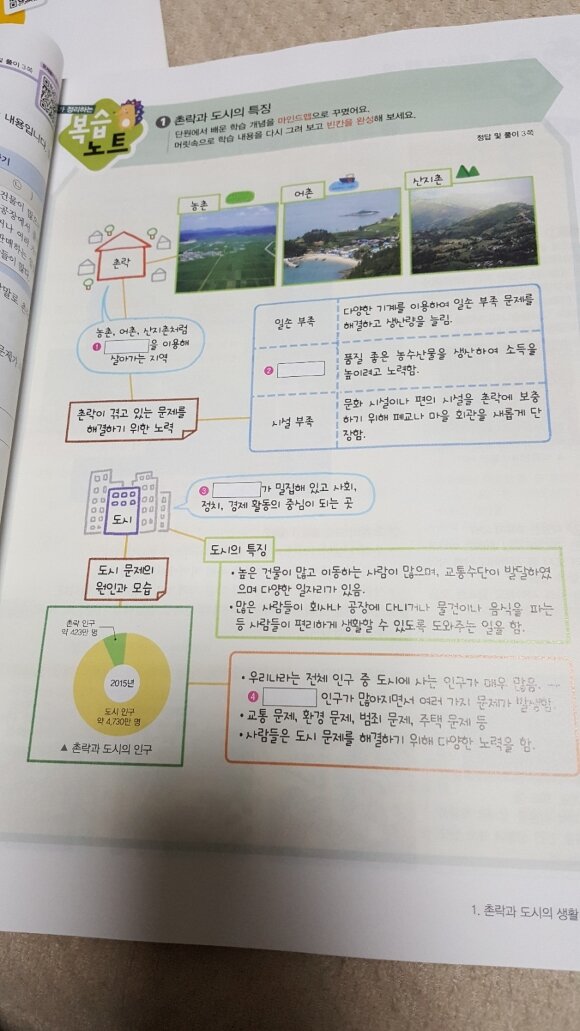 및 풀이 3쪽
내용입니다.
가 정리하는
복습
노트
1 촌락과 도시의 특징
단원에서 배운 학습 개념을 마인드맵으로 꾸몄어요.
머릿속으로 학습 내용을 다시 그려 보고 빈칸을 완성해 보세요.
정답 및 풀이 3쪽
농촌
어촌
산지촌
촌락
농촌, 어촌, 산지촌처럼
1 을 이용해
살아가는 지역
일손 부족
다양한 기계를 이용하여 일손 부족 문제를
해결하고 생산량을 늘림.
2
품질 좋은 농수산물을 생산하여 소득을
높이려고 노력함.
시설 부족
문화 시설이나 편의 시설을 촌락에 보충
하기 위해 폐교나 마을 회관을 새롭게 단
장함.
촌락이 겪고 있는 문제를
해결하기 위한 노력
도시
3 가 밀집해 있고 사회,
정치, 경제 활동의 중심이 되는 곳
도시 문제의
원인과 모습
도시의 특징
• 높은 건물이 많고 이동하는 사람이 많으며, 교통수단이 발달하였
으며 다양한 일자리가 있음.
• 많은 사람들이 회사나 공장에 다니거나 물건이나 음식을 파는
등 사람들이 편리하게 생활할 수 있도록 도와주는 일을 함.
촌락 인구
약 423만 명
2015년
도시 인구
약 4,730만 명
▲ 촌락과 도시의 인구
• 우리나라는 전체 인구 중 도시에 사는 인구가 매우 많음.
4 인구가 많아지면서 여러 가지 문제가 발생함.
• 교통 문제, 환경 문제, 범죄 문제, 주택 문제 등
• 사람들은 도시 문제를 해결하기 위해 다양한 노력을 함.
1. 촌락과 도시의 생활